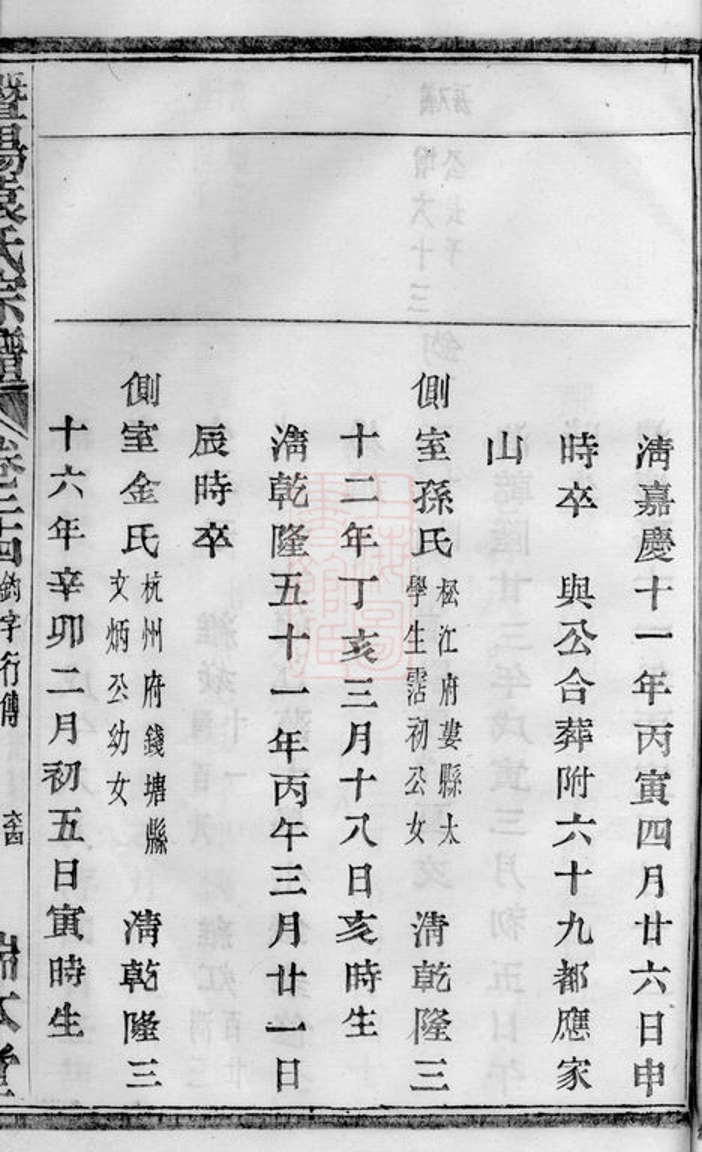 清嘉慶十一年丙寅四月廿六日申
時卒　與公合葬附六十九都應家
山
側室孫氏
松江府婁縣太
學生霑初公女
清乾隆三
十二年丁亥三月十八日亥時生
清乾隆五十一年丙午三月廿一日
辰時卒
側室金氏
杭州府錢塘縣
文炳公幼女
清乾隆三
十六年辛卯二月初五日寅時生
暨陽袁氏宗譜
卷三十四
鈞字行傳